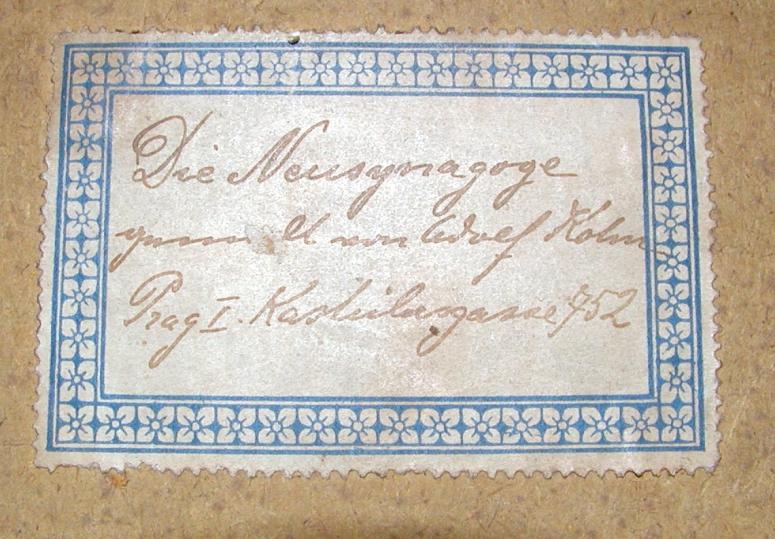 Die Neusynagoge
gemalt von Adolf Kohn
Prag I. 752